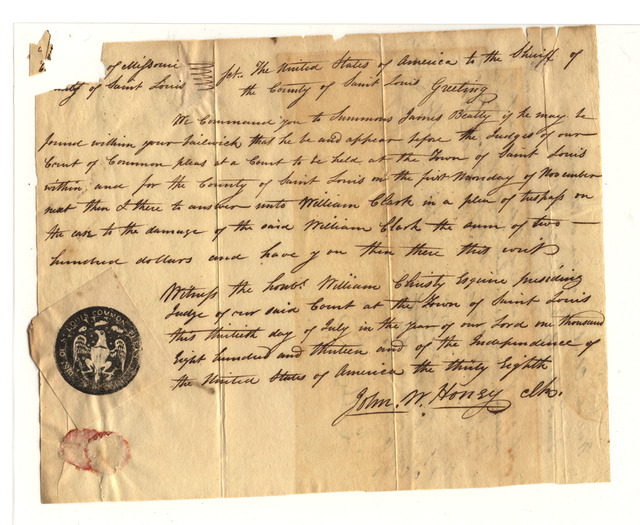 of Missouri
County of Saint Louis } Sct. The United States of America to the Sheriff of
the County of Saint Louis Greeting
We Command you to Summons James Beatty if he may be
found within your bailwick that he be and appear before the Judges of our
Court of Common pleas at a Court to be held at the Town of Saint Louis
within and for the County of Saint Louis on the first Monday of November
next then & there to answer unto William Clark in a plea of trespass on
the case to the damage of the said William Clark the sum of two
hundred dollars and have you then there this writ
Witness the honbl. William Christy Esquire presiding
Judge of our said Court at the Town of Saint Louis
this thirtieth day of July in the year of our Lord one thousand
Eight hundred and thirteen and of the Independence of
the United States of America the thirty Eighth
John. W. Honey clk.
ST LOUIS COMMON PLEAS